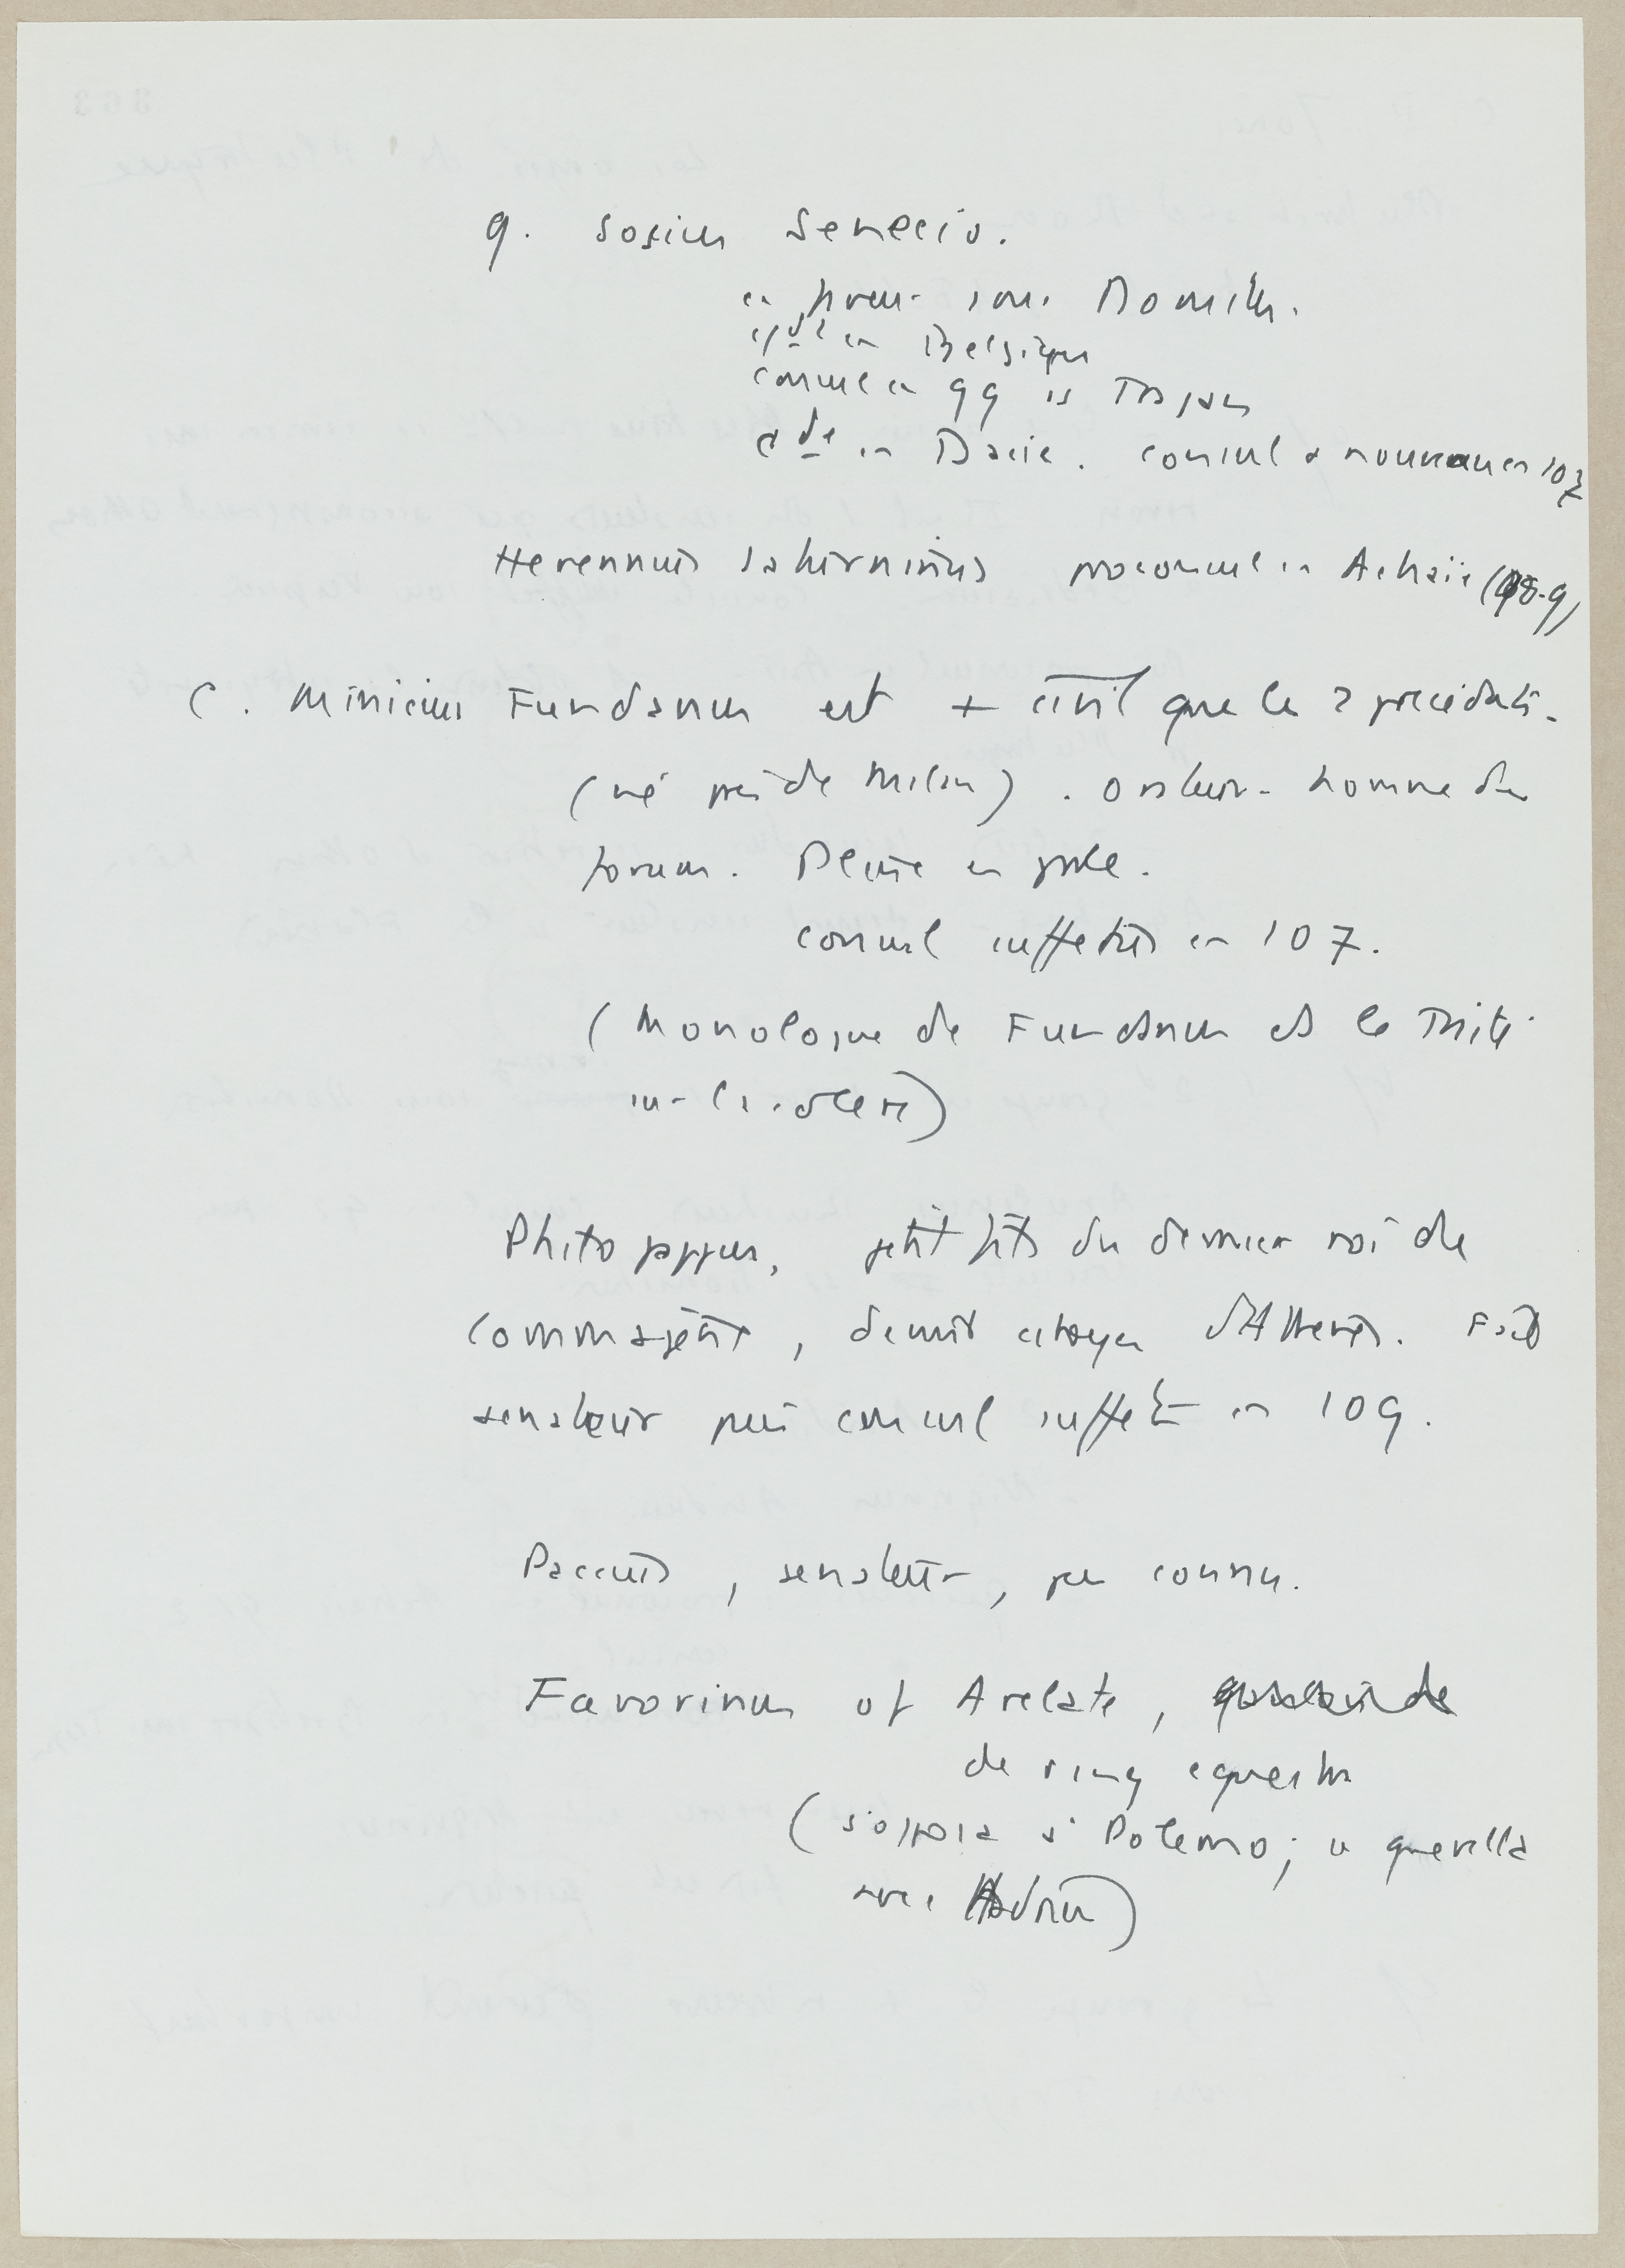 Q. Sosius Senecio.
en faveur sous Domitien.
cdt en Belgique
consul en 99 ss Trajan
cdt en Dacie. consul à nouveau en 107
Herennius Saturninus proconsul en Achaïe (98-9)
C. Minicius Fundanus est + civil que les 2 précédents.
(né près de Milan). Orateur - homme du
forum. Pline en parle.
consul suffectus en 107.
(Monologue de Fundanus ds le Traité
sur la colère)
Philopappus, petit fils du dernier roi de
Commagène, devint citoyen d'Athènes. Fait
sénateur puis consul suffect en 109.
Paccius, sénateur, peu connu.
Favorinus of Arelate,
de rang equestre
(s'opposa à Polemo; se querella
avec Hadrien)